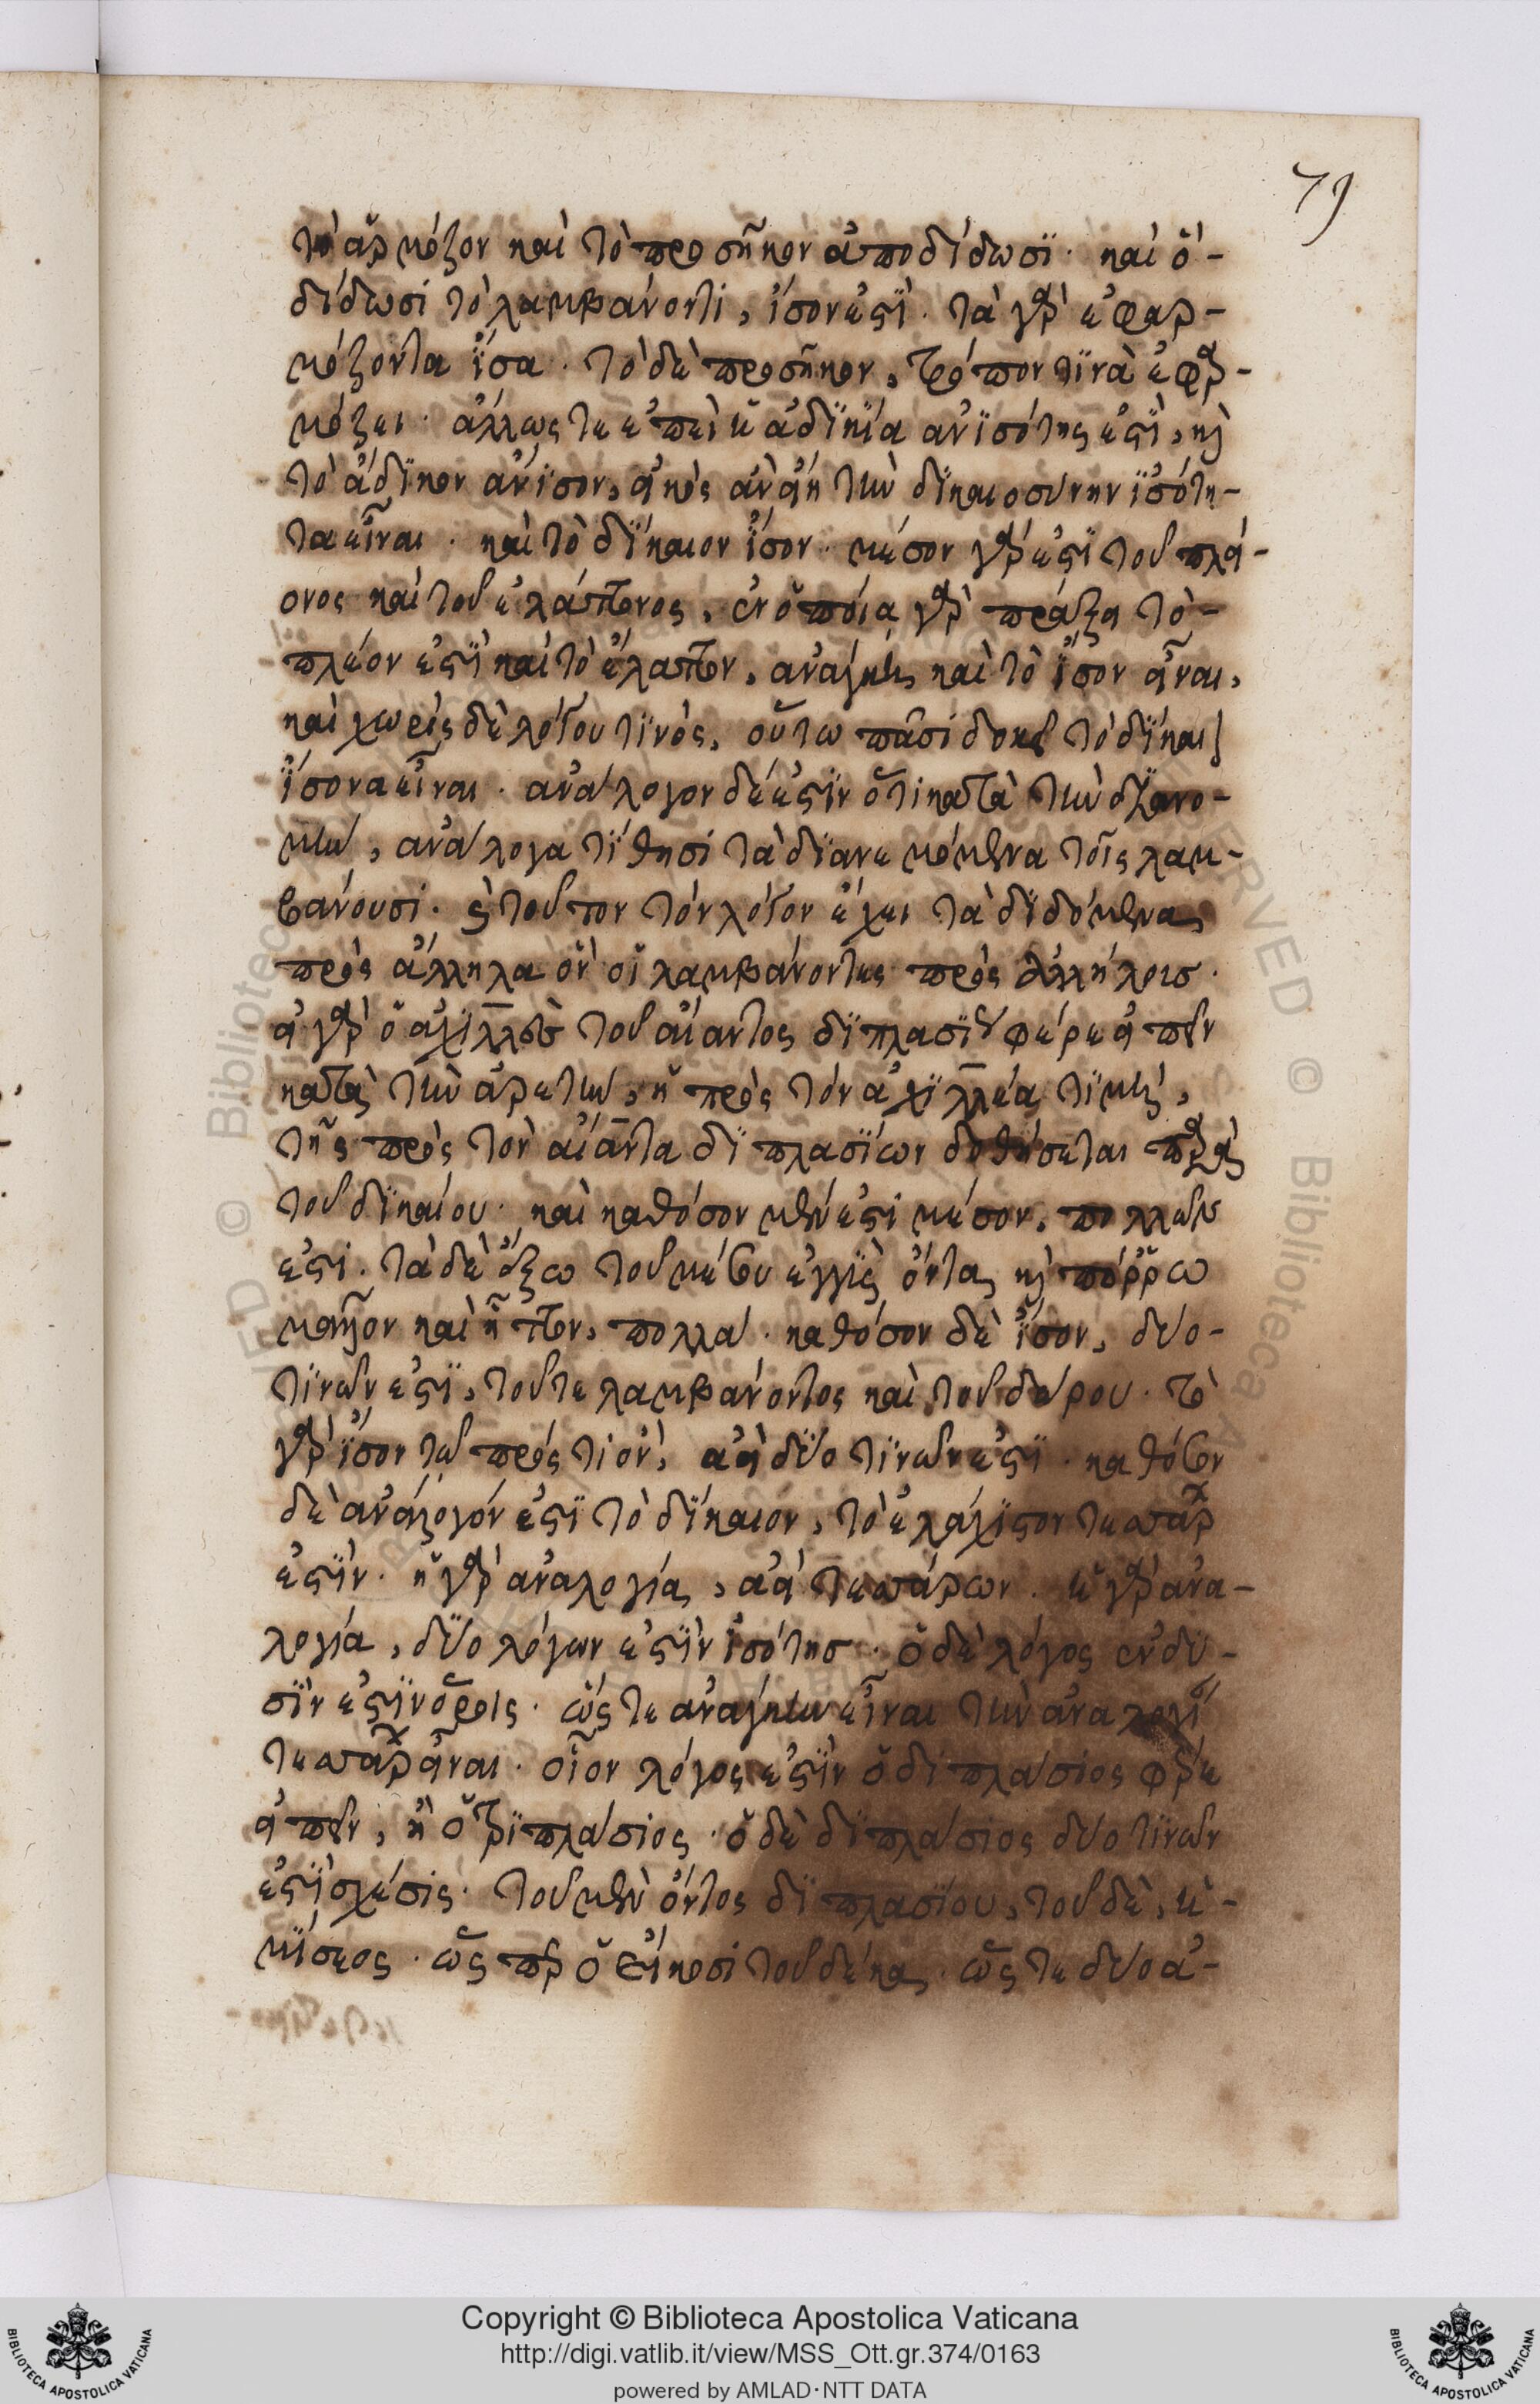 79
τὸ ἁρμόζον καὶ τὸ προσῆκον ἀποδίδωσϊ· καὶ ὁ-
δίδωσι τὸ λαμβάνοντι, ἴσον ἐστϊ· τὰ γὰρ ἐφαρ-
μόζοντα ἴσα· τὸ δὲ προσῆκον, τρόπον τϊνὰ ἐφαρ-
μόζει· ἄλλως τε ἐπεὶ ἡ ἀδϊκϊα ἀνϊσότης ἐστϊ, καὶ
τὸ ἄδϊκον ἄνϊσον, εἰκὸς ἂν εἴη τὴν δϊκαιοσύνην ϊσότη-
τα εἶναι· καὶ τὸ δϊκαιον ἴσον· μέσον γὰρ ἐστϊ τοῦ πλεί-
ονος καὶ τοῦ ἐλάττονος, ἐν ὁποία γὰρ πράξει τὸ-
πλέον ἐστϊ καὶ τὸ ἔλαττον, ἀνάγκη καὶ τὸ ἴσον εἶναι,
καὶ χωρὶς δὲ λόγου τϊνὸς, οὕτω πᾶσι δοκεῖ τὸ δϊκαιον
ἴσον εἶναι· ἀνάλογον δέ ἐστϊν ὅτι κατὰ τὴν διανο-
μὴν, ἀνάλογα τϊθησι τὰ δϊανεμόμενα τοῖς λαμ-
βάνουσι· καὶ τοῦτον τὸν λόγον ἔχει τὰ δϊδόμενα
πρὸς ἄλληλα ὃν οἱ λαμβάνοντες πρὸς ἀλλήλοισ·
εἰ γὰρ ὁ ἀχιλλεὺς τοῦ αἴαντος δϊπλασϊου φέρε εἰπεῖν
κατὰ τὴν ἀρετὴν, ἡ πρὸς τὸν ἀχϊλλέα τϊμὴ,
τῆς πρὸς τὸν αἴαντα δϊπλασϊων δοθήσεται παρὰ
τοῦ δϊκαίου· καὶ καθόσον μέν ἐστι μέσον, πολλῶν
ἐστι. τὰ δὲ ἔξω τοῦ μέσου ἐγγὺς ὄντα, καὶ πόρρω
μᾶλλον καὶ ἧττον, πολλά· καθόσον δὲ ἴσον, δύο-
τϊνῶν ἐστϊ, τοῦ τε λαμβάνοντος καὶ τοῦ δώρου· τὸ
γὰρ ἴσον τῶν πρός τι ὂν, ἀεὶ δϋο τϊνῶν ἐστϊ· καθόσον
δὲ ἀνάλογόν ἐστϊ τὸ δϊκαιον, τὸ ἐλάχϊστον τεσσάρ
ἐστϊν· ἡ γὰρ ἀναλογία, ἀεὶ τεσσάρων· ἡ γὰρ ἀνα-
λογία, δϋο λόγων ἐστϊν ἰσότησ· ὁ δὲ λόγος ἐν δϋ-
σϊν ἐστϊν ὅροις· ὥς τε ἀνάγκην εἶναι τὴν ἀναλογϊ
τεσσάρ εἶναι· οἷον λόγος ἐστϊν ὁ διπλάσιος φέρε
εἰπεῖν, ἢ ὁ τρϊπλάσιος· ὁ δὲ δϊπλάσιος δύο τϊνῶν
ἐστϊ σχέσις· τοῦ μὲν ὄντος δϊπλασϊου, τοῦ δὲ, ἡ-
μϊσεος· ὥς περ ὁ εἴκοσι τοῦ δέκα· ὥς τε δύο ἀ-
Copyright © Biblioteca Apostolica Vaticana
http://digi.vatlib.it/view/MSS_Ott.gr.374/0163
powered by AMLAD·NTT DATA
BIBLIOTECA APOSTOLICA VATICANA
BIBLIOTECA APOSTOLICA VATICANA